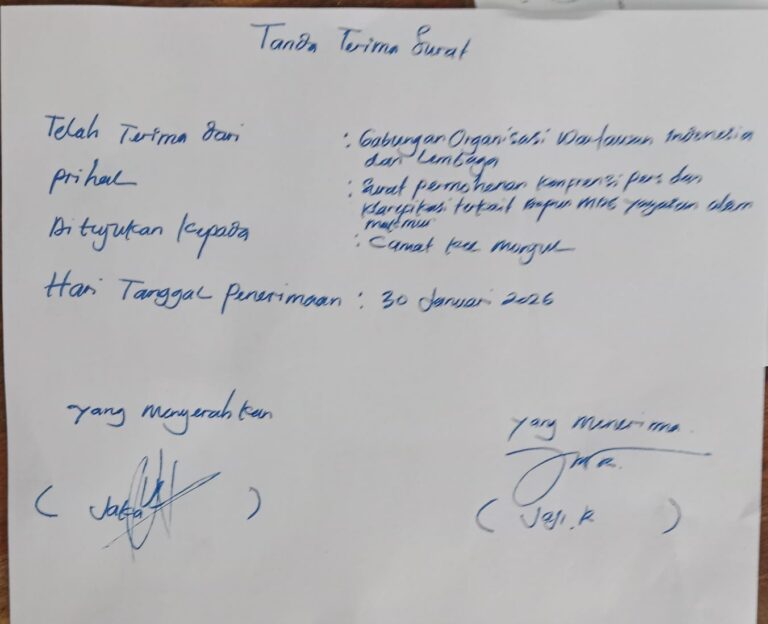 Tanda Terima Surat
Telah Terima dari : Gabungan Organisasi Wartawan Indonesia
dan Lembaga
prihal : Surat permohonan konprensi pers dan
klarepikasi terkait MBG yayasan
makmur
Ditujukan kepada : Camat kec
Hari Tanggal penerimaan : 30 Januari 2026
yang menyerahkan
yang menerima.
( Jaka )
( R )